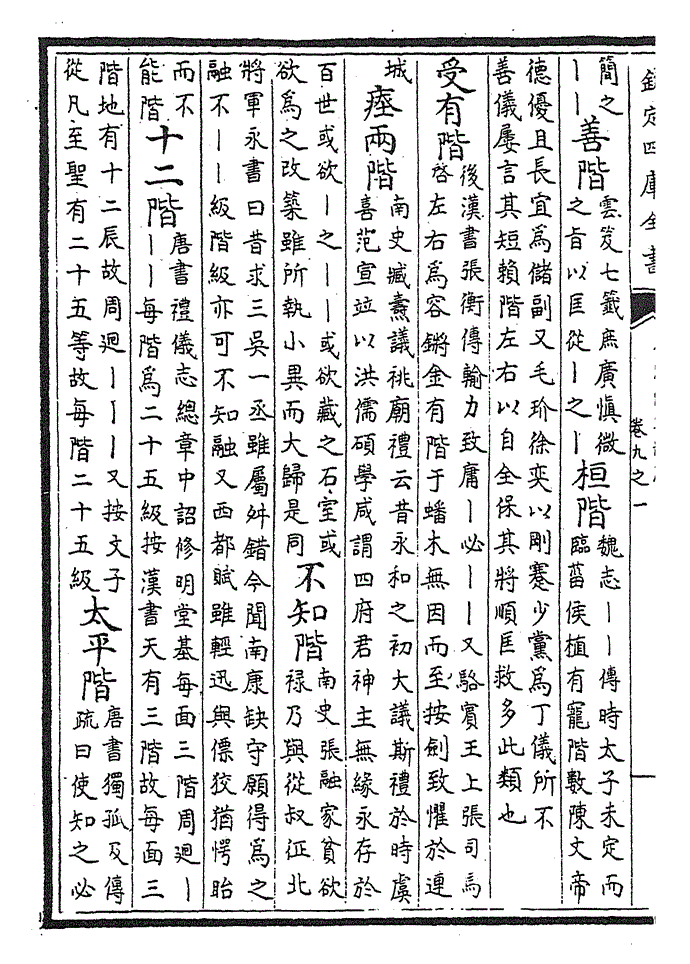 欽定四庫全書
卷九之一
簡之
｜｜
善階
雲笈七籤庶廣慎微
之旨以匡從｜之｜
桓階
魏志｜｜傳時太子未定而
臨菑侯植有寵階數陳文帝
德優且長宜為儲副又毛玠徐奕以剛蹇少黨為丁儀所不
善儀屢言其短賴階左右以自全保其將順匡救多此類也
受有階
後漢書張衡傳輸力致庸｜必｜｜又駱賓王上張司馬
啓左右為容鏘金有階于蟠木無因而至按劍致懼於連
城
瘞兩階
南史臧燾議祧廟禮云昔永和之初大議斯禮於時虞
喜范宣竝以洪儒碩學咸謂四府君神主無緣永存於
百世或欲｜之｜｜或欲藏之石室或
欲為之改築雖所執小異而大歸是同
不知階
南史張融家貧欲
祿乃與從叔征北
將軍永書曰昔求三吳一丞雖屬舛錯今聞南康缺守願得為之
融不｜｜級階級亦可不知融又西都賦雖輕迅與僄狡猶愕眙
而不
能階
十二階
唐書禮儀志總章中詔修明堂基每面三階周迴｜
｜｜每階為二十五級按漢書天有三階故每面三
階地有十二辰故周迴｜｜｜又按文子
從凡至聖有二十五等故每階二十五級
太平階
唐書獨孤及傳
疏曰使知之必